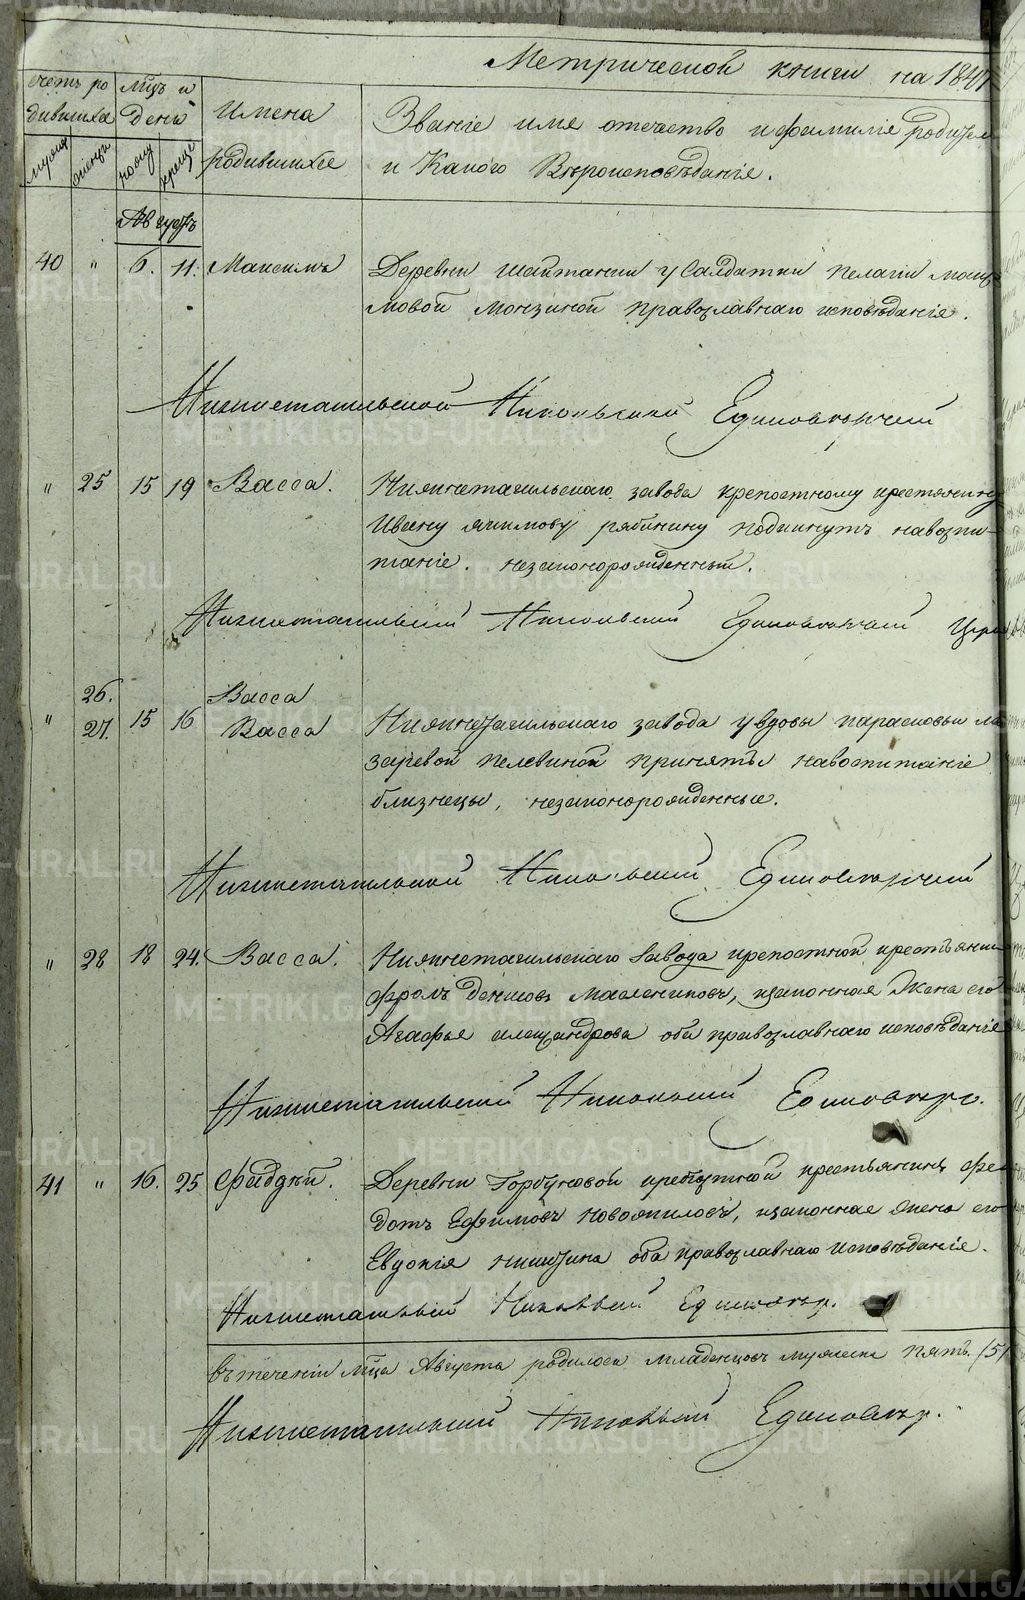 Метрической книги на 184
счетъ ро
дившихся
мѣц и
день
имена
родившихся
Званіе имя отечество и фамилія родител
и Какого Вѣроисповѣданія.
мужеск
женска
Августъ
40 " 6. 11. Максимъ Деревни Шайтанки у Салдатки Пелагіи Макси
мовой Монзиной православнаго исповѣданія.
Нижнетагильской Никольской Единовѣрчий
" 25 15 19 Васса. Нижнетагильскаго завода крепостному крестянину
Ивану Акимову рябинину подкинутъ навоспи-
таніе. незаконорожденный.
Нижнетагильский Никольский Единовѣрчий Церкв
26. Васса
" 27. 15 16 Васса Нижнетагильскаго завода у вдовы парасковьи ла
заревой пелевиной приняты навоспитаніе
близнецы, незаконорожденные.
Нижнетагильской Никольский Единовѣрчий
" 28 18 24. Васса. Нижнетагильскаго Завода крепостной крестьянин
Фролъ Денисовъ Маслениковъ, законная Жена его
Агафья александрова оба православнаго исповѣданія
Нижнетагильский Никольский Единовѣрч.
41 " 16. 25 Фаддѣй. Деревни Горбуновой крестьянинъ Фе
дотъ Ефимовъ Новожиловъ, законная жена его
Евдокія никитина оба православнаго исповѣданія.
Нижнетагильский Никольский Единовѣр.
въ теченіи мѣца Августа родилося младенцовъ мужеска пять. (5)
Нижнетагильский Никольский Единовѣр.
METRIKI.GASO-URAL.RU